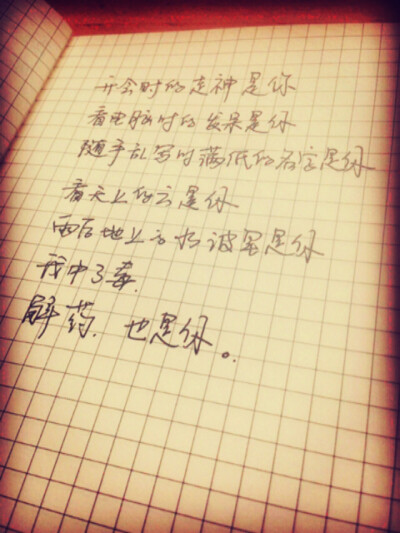 开会时的走神是你
看电脑时的发呆是你
随手乱写时满纸的名字是你
看天上的云是你
雨后地上 是你
我中了毒.
解药. 也是你。